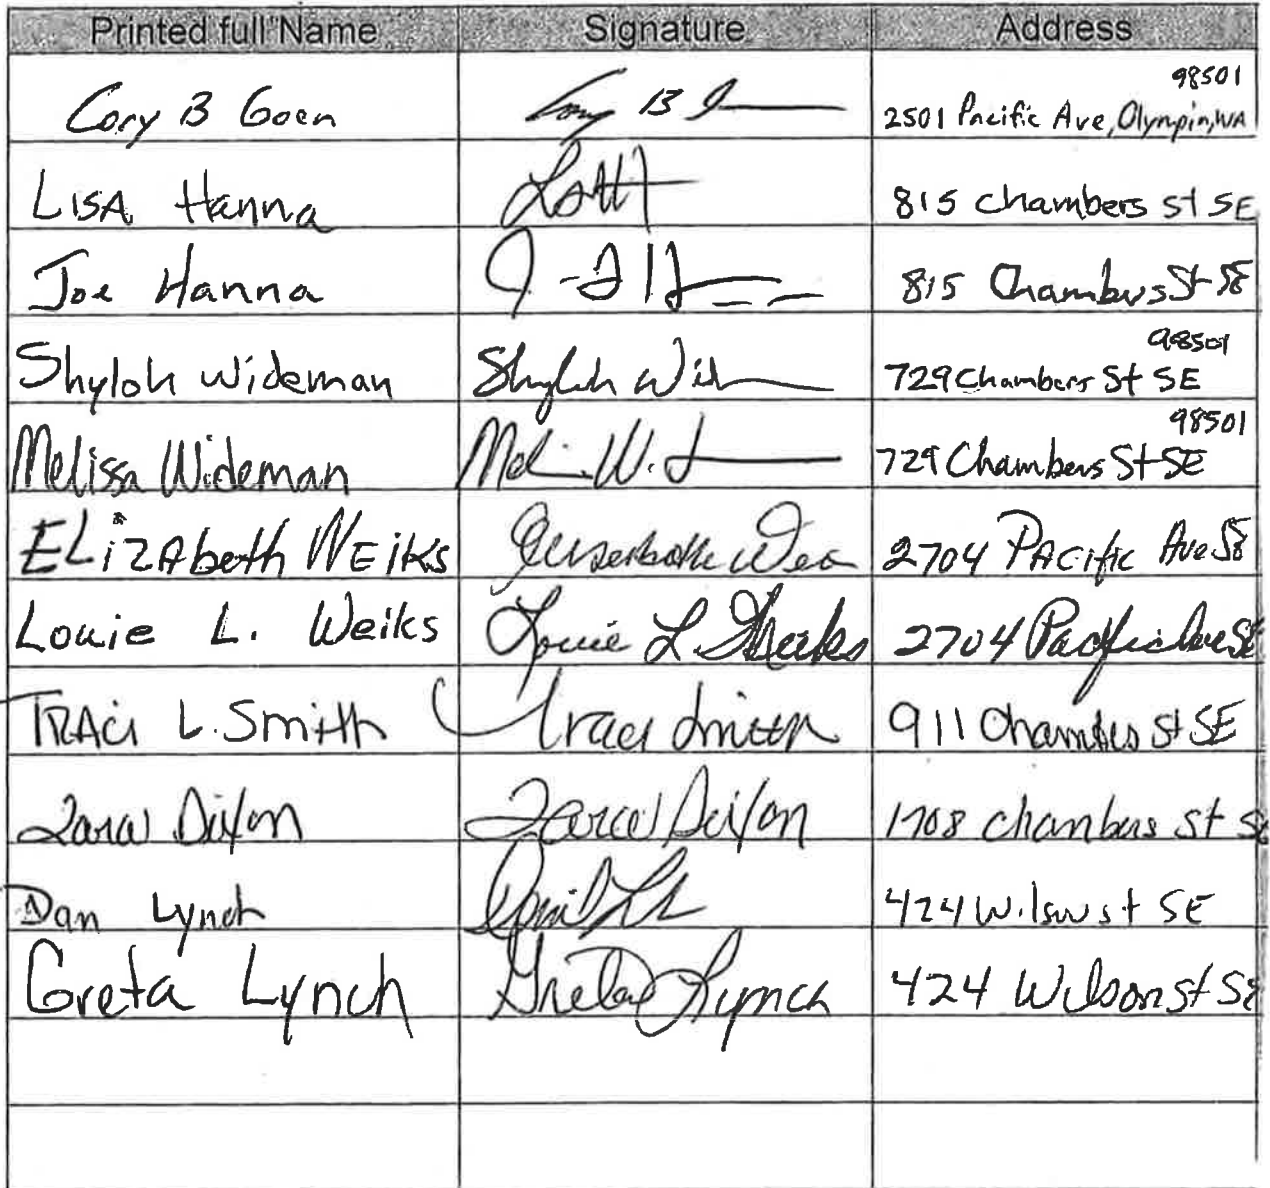 Printed full Name Signature Address
Cory B Goen Cory B G 98501
2501 Pacific Ave, Olympia, WA
LISA Hanna 815 Chambers St SE
Joe Hanna 815 Chambers St SE
Shyloh Wideman Shyloh Wid 98501
729 Chambers St SE
Melissa Wideman 98501
729 Chambers St SE
ELizAbeth WEiks 2704 PAcific Ave SE
Louie L. Weiks Louie L. Weiks 2704 Pacific Ave SE
TRACi L. Smith Traci Smith 911 Chambers St SE
Zara Dixon Zara Dixon 1708 Chambers St SE
Dan Lynch 424 Wilson st SE
Greta Lynch Greta Lynch 424 Wilson st SE